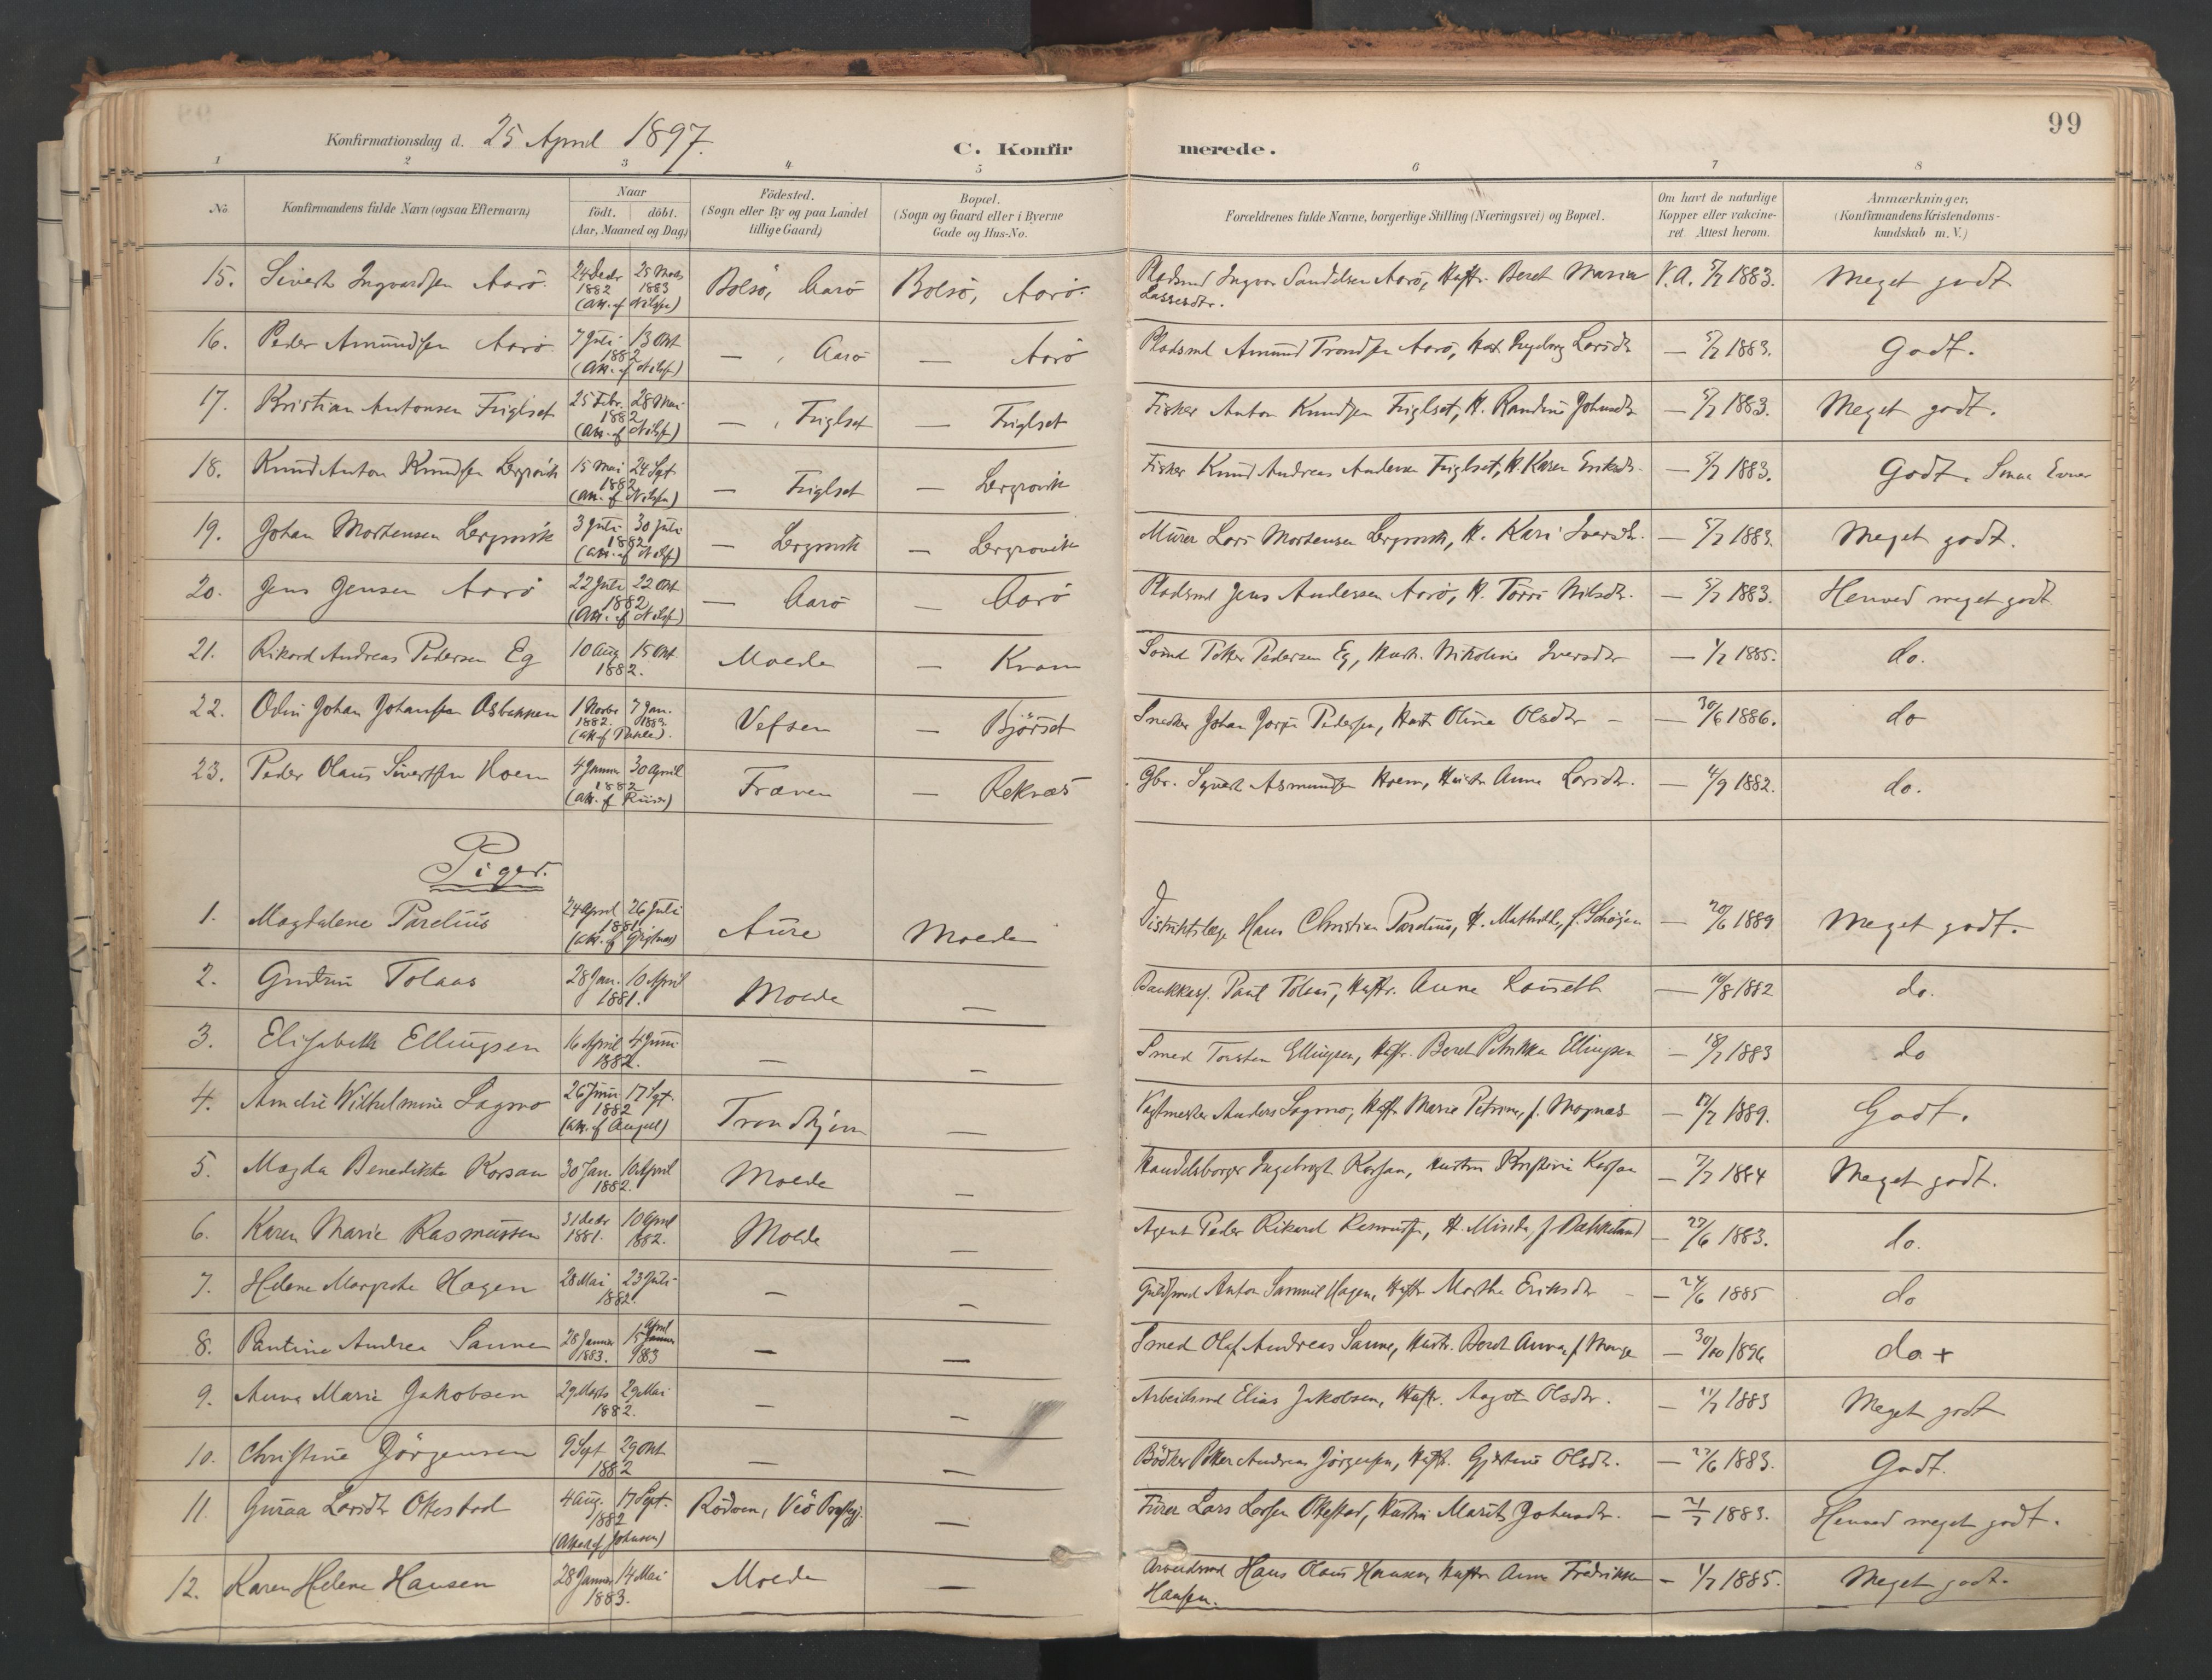 99
Konfirmationsdag d. 25 April 1897.
C. Konfirmerede.
1 2 3 4 5 6 7 8
No
Konfirmandens fulde Navn (ogsaa Efternavn)
Naar
födt. döbt.
(Aar, Maaned og Dag)
Födested.
(Sogn eller By og paa Landet
tillige Gaard)
Bopæl.
(Sogn og Gaard eller i Byerne
Gade og Hus-No.
Forældrenes fulde Navne, borgerlige Stilling (Næringsvei) og Bopæl.
Om havt de naturlige
Kopper eller vakcine-
ret. Attest herom.
Anmærkninger,
(Konfirmandens Kristendoms-
kundskab m. V.)
15. Sivert Ingvardsen Aarö. 24 Decbr 1882 25 Marts 1883 (Att. af Nilsen) Bolsö, Aarö Bolsö, Aarö. Pladsmd Ingvar Sandelsen Aarö, Hustr. Beret Maria Lassesdtr. V.A. 5/7 1883. Meget godt
16. Peder Amundsen Aarö 7 Juli 13 Okt 1882 (Att. af Nilsen) — , Aarö — Aarö Pladsmd Amund Trondsen Aarö, Hust. Ingeborg Larsdtr — 5/7 1883. Godt.
17. Kristian Antonsen Fuglset 25 Febr. 28 Mai 1882 (Att. af Nilsen) — , Fuglset — Fuglset Fisker Anton Knudsen Fuglset, H. Randine Johnsdtr — 5/7 1883. Meget godt.
18. Knud Anton Knudsen Lergrovik 15 Mai 24 Sept 1882 (Att. af Nilsen) — Fuglset — Lergrovik Fisker Knud Andreas Andersen Fuglset, H. Karen Eriksdtr. — 5/7 1883. Godt. Smaa Evner
19. Johan Mortensen Lergrovik 3 Juli 30 Juli 1882 (Att. af Nilsen) — Lergrovik — Lergrovik Murer Lars Mortensen Lergrovik, H. Kari Iversdtr. — 5/7 1883. Meget godt.
20. Jens Jensen Aarö 22 Juli 22 Okt 1882 (Att. af Nilsen) — Aarö — Aarö Pladsmd Jens Andersen Aarö, H. Torri Nilsdtr. — 5/7 1883. Henved meget godt
21. Rikard Andreas Pedersen Eg 10 Aug 15 Okt. 1882. Molde — Kvam Petter Pedersen Eg, Hustr. Nikoline Iversdtr — 1/7 1885. do.
22. Odin Johan Johansen Asbakken 1 Novbr 1882. 7 Jan. 1883. Vefsen — Björset Snedker Johan Jorgen Pedersen, Hustr Oline Olsdtr — 30/6 1886. do
23. Peder Olaus Sivertsen Hoem 4 Januar 30 April 1882 Fræna — Reknæs Gbr. Sivert Asmundsen Hoem, Hustr Anne Larsdtr. — 4/9 1882. do.
Piger.
1. Magdalene Parelius 24 April 26 Juli 1881 Aure Molde Distriktslæge Hans Christian Parelius, H. Mathilde, f. — 20/6 1889 Meget godt.
2. Gudrun Tolaas 28 Jan. 10 April 1881. Molde — Bankkass. Paul Tolaas, Hustr. Anne — 10/8 1882 do.
3. Elisabeth Ellingsen 16 April 4 Juni 1882. — — Smed Torsten Ellingsen, Hustr. Beret Petrikka Ellingsen — 18/7 1883 do
4. Amelie Wilhelmine Sagmo 26 Juni 17 Sept. 1882 Trondhjem — Anders Sagmo, Hustr Marie Petrine, f. Mognæs — 17/7 1889. Godt.
5. Magda Benedikte Korsan 30 Jan. 10 April 1882. Molde — Handelsborger Ingebrigt Korsan, Hustru Kristine Korsan — 7/7 1884 Meget godt.
6. Karen Marie Rasmussen 31 Decbr 1881. 10 April 1882. Molde — Agent Peder Rikard Rasmussen, H. — 27/6 1883. do.
7. Helene Margrete Hagen 28 Mai 23 Juli 1882. — — Guldsmed Anton Samuel Hagen, Hustr Marthe Eriksdtr — 24/6 1885 do
8. Pauline Andrea Sanne 28 Januar 1883. 15 April Januar 1883 — — Smed Olaf Andreas Sanne, Hustr. Beret Anna, f. — 30/10 1896 do +
9. Anna Marie Jakobsen 29 Marts 29 Mai 1882. — — Arbeidsmd Elias Jakobsen, Hustr. Aagot Olsdtr. — 11/7 1883 Meget godt
10. Christine Jörgensen 9 Sept 29 Okt 1882 — — Bödker Petter Andreas Jörgensen, Hustr. Gjertine Olsdtr. — 27/6 1883. Godt.
11. Guraa Larsdtr Okestad 4 Aug. 17 Sept. 1882 (Attest af Johnsen) Rödven, Veö Prgj. — Lars Larsen Okestad, Hustru Marit Johnsdtr. — 21/7 1883. Henved meget godt.
12. Karen Helene Hansen 28 Januar 14 Mai 1883. Molde — Arbeidsmd Hans Olaus Hansen, Hustr Anne Fredrikke Hansen. — 1/7 1885. Meget godt.